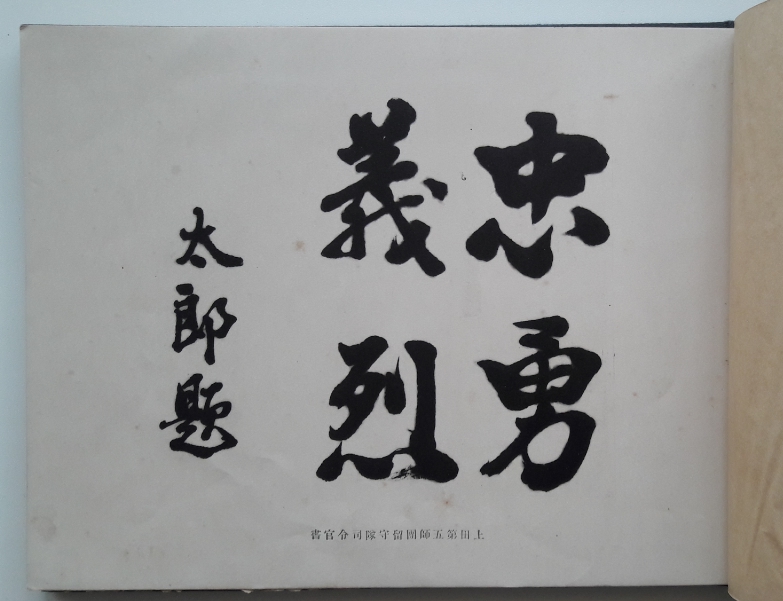 忠勇
義烈
太郎題
上田第五師團留守隊司令官書